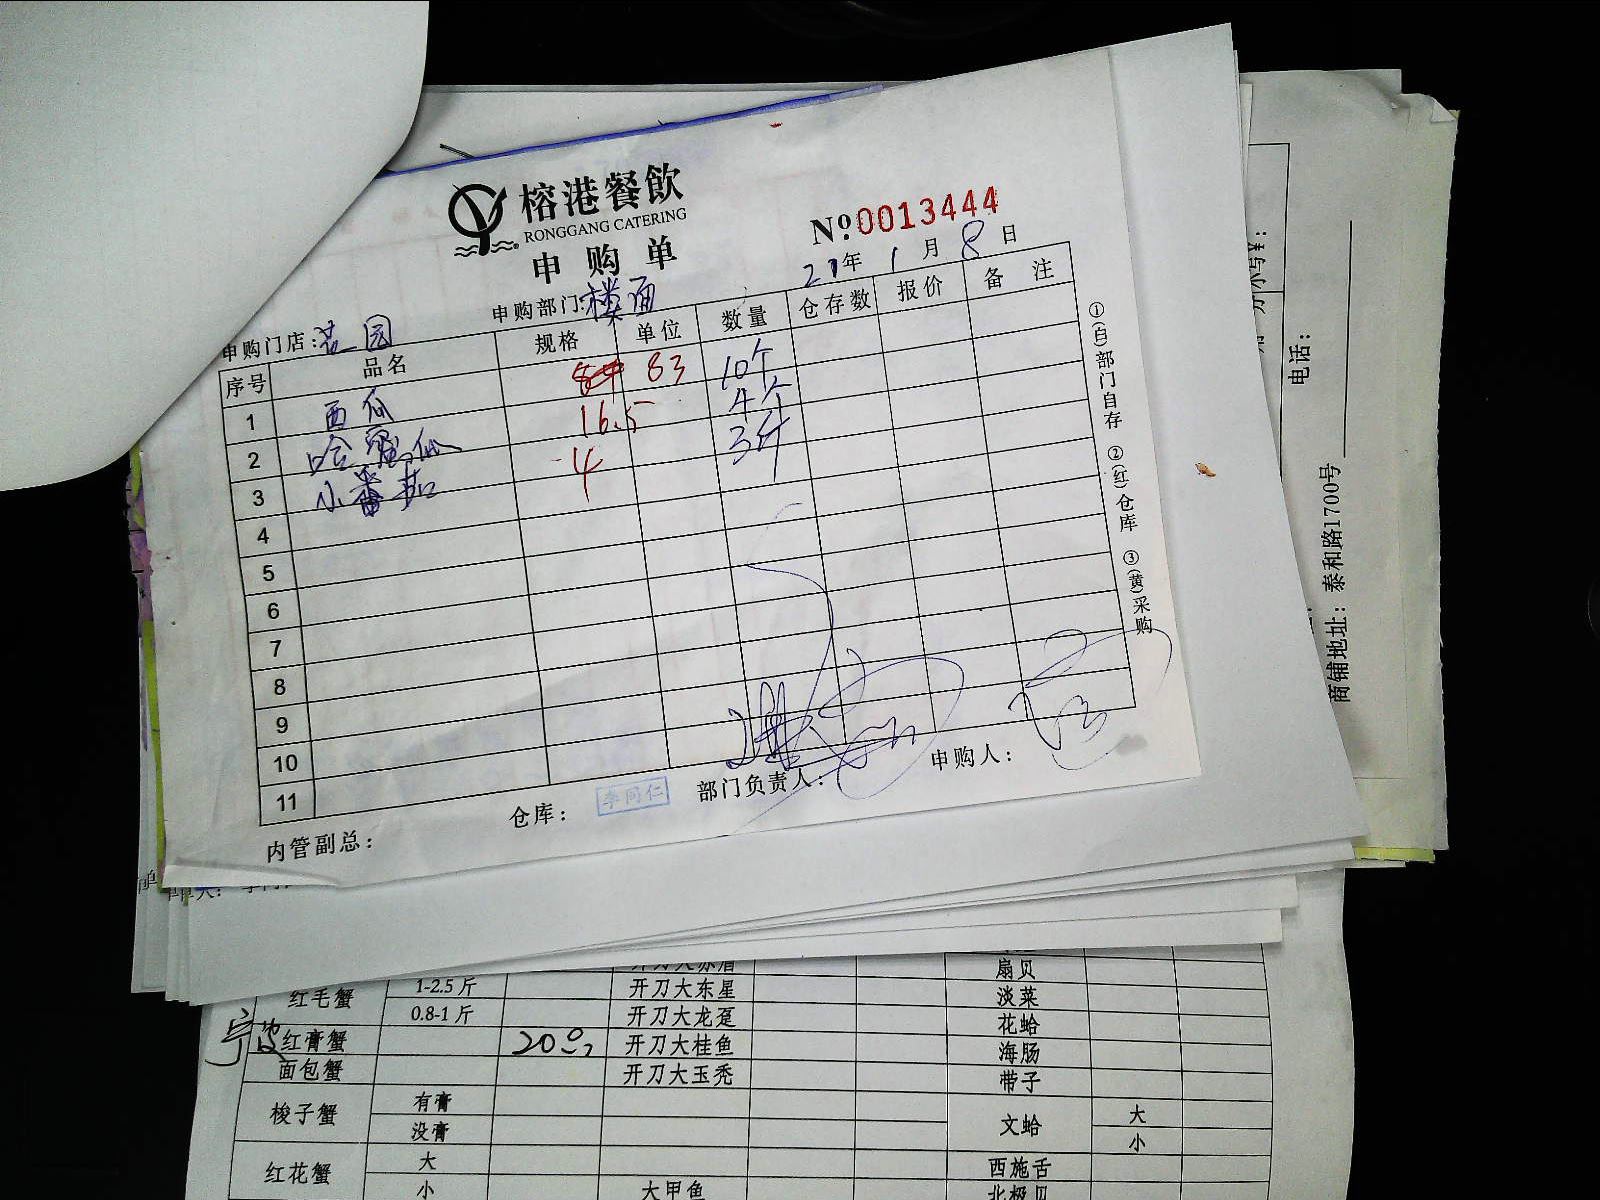 榕港餐飲
RONGGANG CATERING
申购单
№0013444
21年1月8日
申购门店:花园 申购部门:楼面
序号 品名 规格 单位 数量 仓存数 报价 备注
1 西瓜 83 10个
2 哈蜜瓜 16.5 4个
3 小番茄 4 3斤
4
5
6
7
8
9
10
11
内管副总: 仓库: 李同仁 部门负责人: 申购人:
①(白)部门自存 ②(红)仓库 ③(黄)采购
电话:
商铺地址: 泰和路1700号
扇贝
红毛蟹 1-2.5斤 开刀大东星 淡菜
0.8-1斤 开刀大龙趸 花蛤
宁波 红膏蟹 开刀大桂鱼 海肠
面包蟹 开刀大玉秃 带子
梭子蟹 有膏 文蛤 大
没膏 小
红花蟹 大 西施舌
小 大甲鱼 北极贝